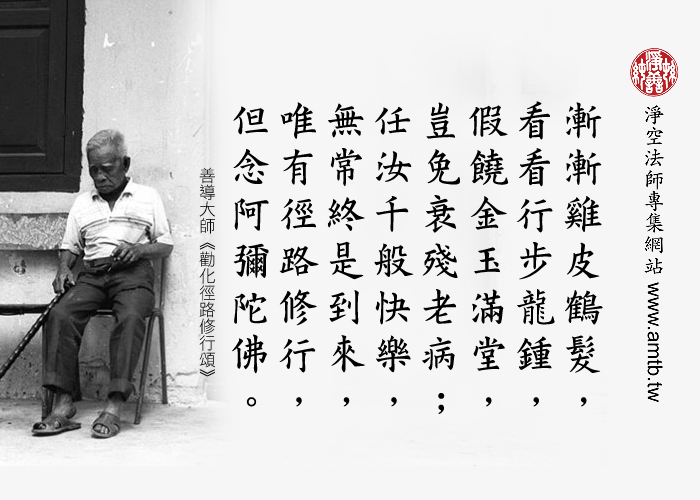 漸漸雞皮鶴髮，
看看行步龍鍾，
假饒金玉滿堂，
豈免衰殘老病；
任汝千般快樂，
無常終是到來，
唯有徑路修行，
但念阿彌陀佛。
善導大師《勸化徑路修行頌》
淨空法師專集網站 www.amtb.tw